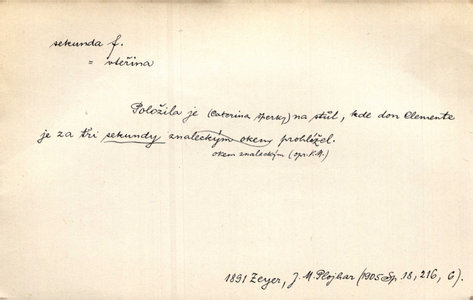 sekunda f.
= vteřina
Položila je (Caterina šperky) na stůl, kde don Clemente
je za tři sekundy znaleckým okem prohlížel.
okem znaleckým (opr. K.H.)
1891 Zeyer, J. M. Plojhar (1905 Sp. 18, 216, 6).